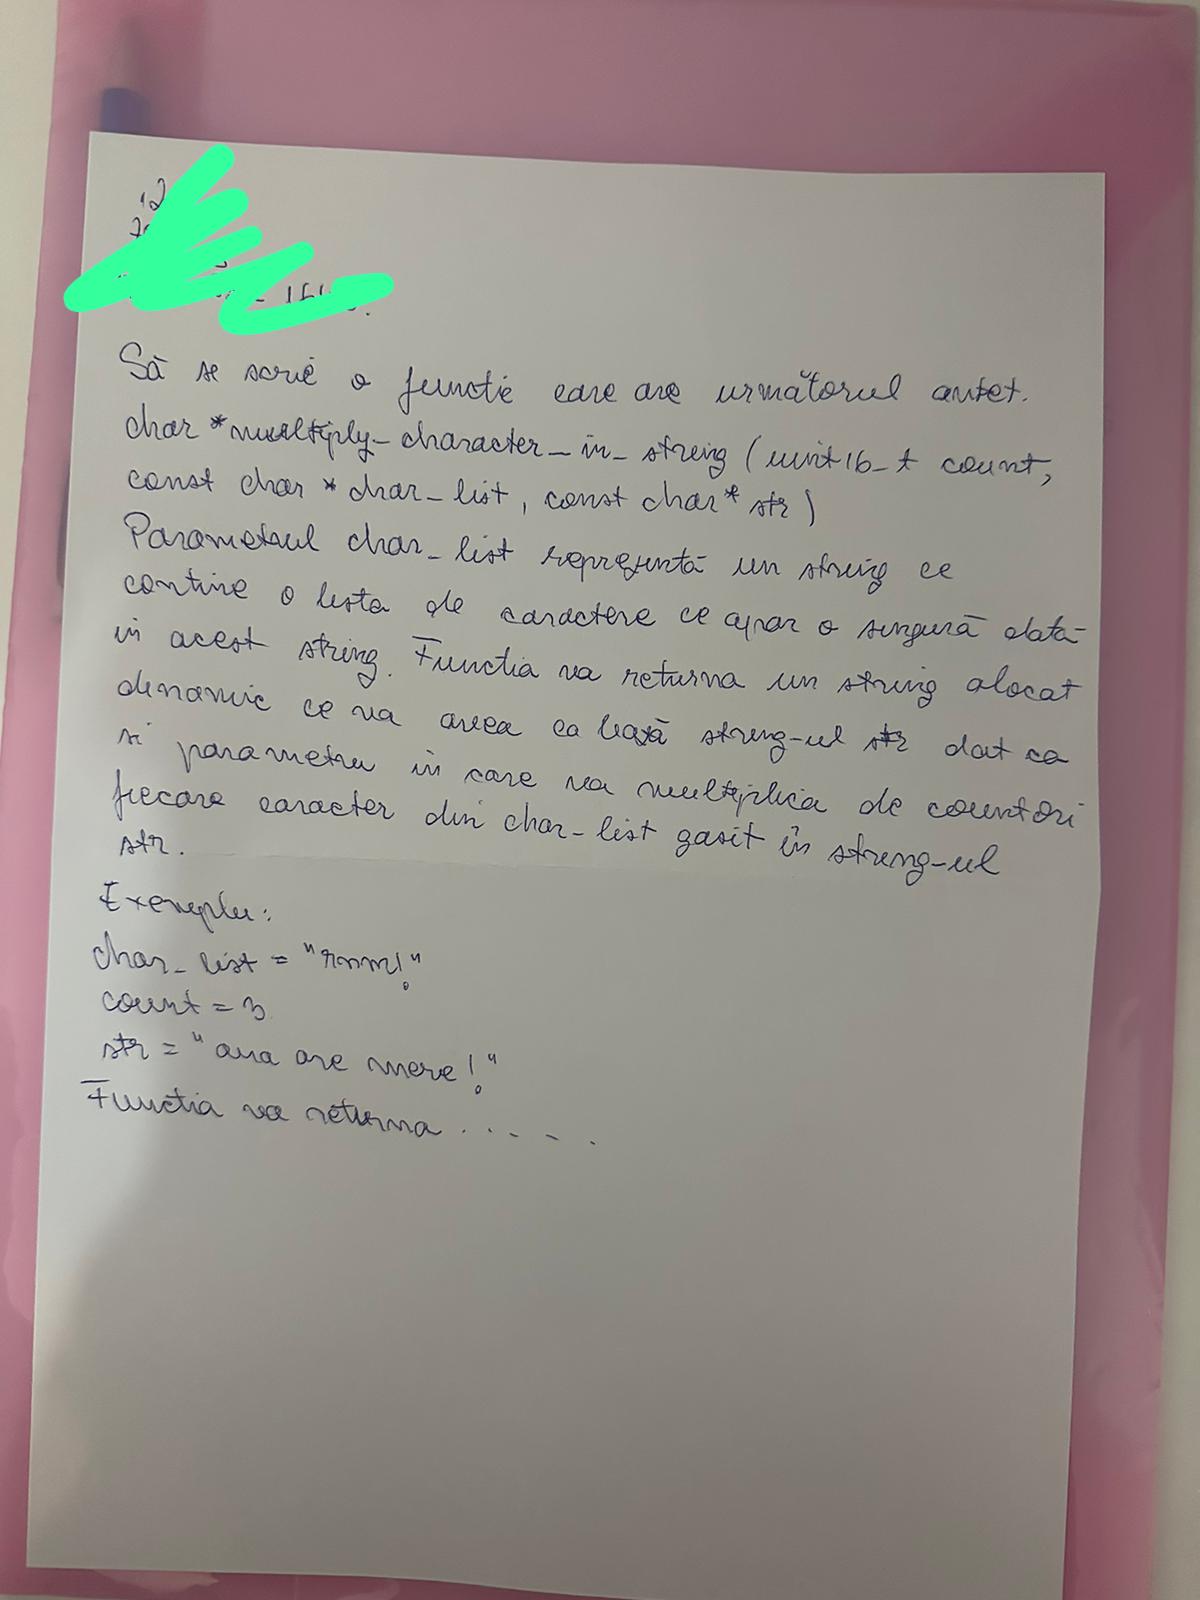 Să se scrie o functie care are următorul antet.
char *multiply_character_in_string (uint16_t count,
const char * char_list, const char* str)
Parametrul char_list reprezintă un string ce
contine o lista de caractere ce apar o singură dată
in acest string. Functia va returna un string alocat
dinamic ce va avea ca bază string-ul str dat ca
si parametru in care va multiplica de count ori
fiecare caracter din char_list gasit în string-ul
str.
Exemplu:
char_list = "rnm!"
count = 3
str = "ana are mere!"
Functia va returna . . . . .